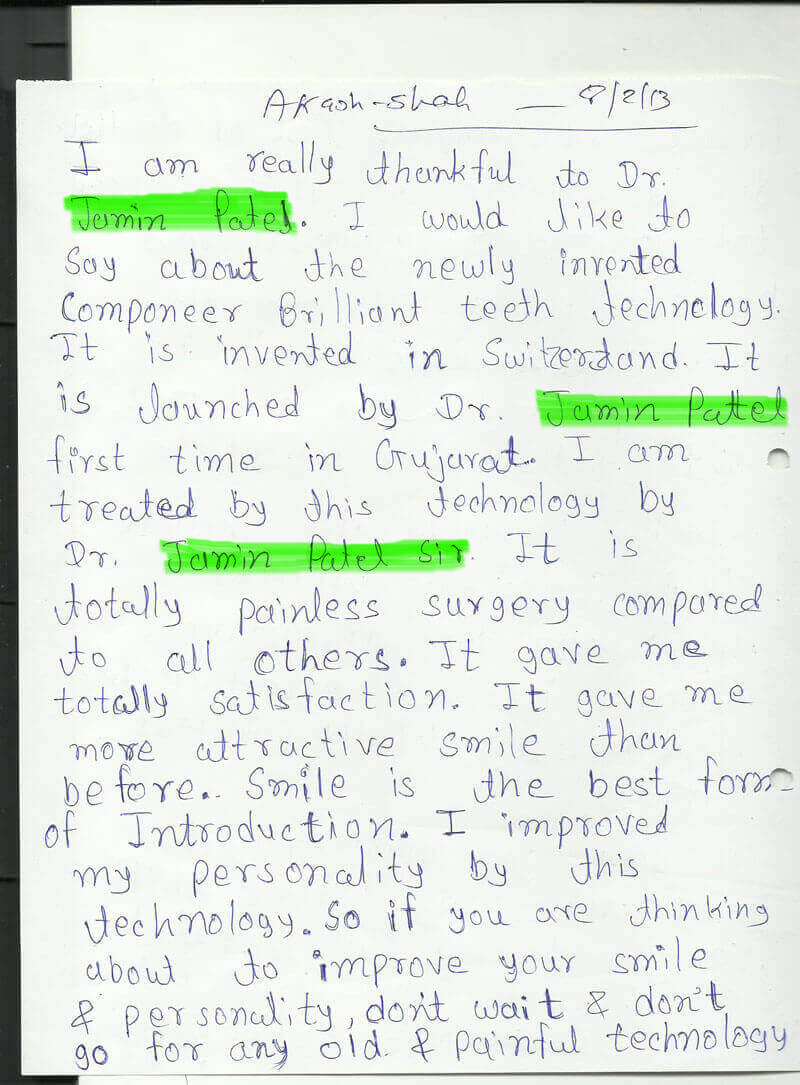 Akash-shah — 8/2/13
I am really thankful to Dr.
Jamin Patel. I would like to
say about the newly invented
Componeer Brilliant teeth technology.
It is invented in Switzerdand. It
is launched by Dr. Jamin Pattel
first time in Gujarat. I am
treated by this technology by
Dr. Jamin Patel sir. It is
totally painless surgery compared
to all others. It gave me
totally satisfaction. It gave me
more attractive smile than
before.. Smile is the best form
of Introduction. I improved
my personality by this
technology. So if you are thinking
about to improve your smile
& personality, don't wait & don't
go for any old & painful technology